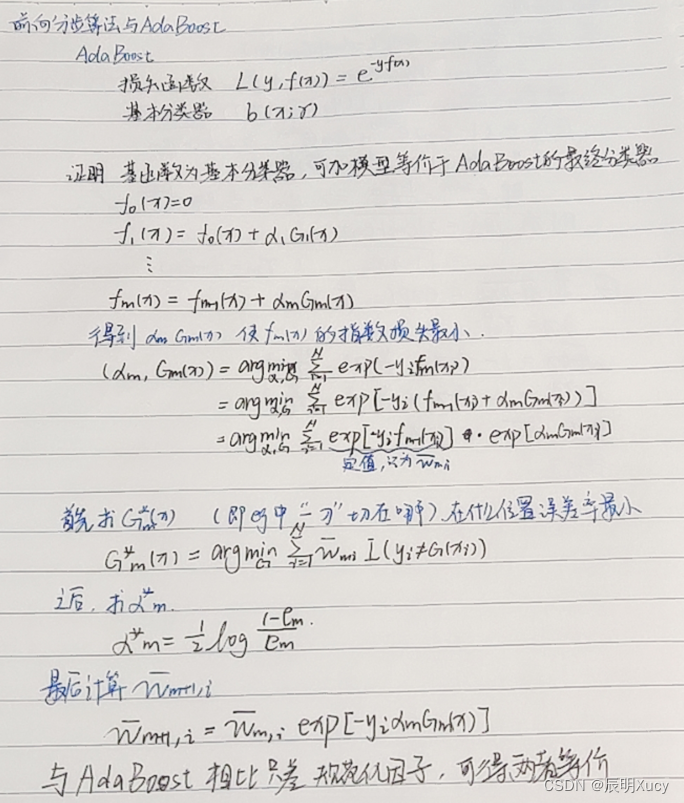 前向分步算法与AdaBoost
AdaBoost
损失函数 L(y,f(x)) = e^{-yf(x)}
基本分类器 b(x;γ)
证明 基函数为基本分类器,可加模型等价于AdaBoost的最终分类器
f₀(x)=0
f₁(x) = f₀(x) + α₁G₁(x)
⋮
fm(x) = fm-1(x) + αmGm(x)
得到 αm Gm(x) 使 fm(x) 的指数损失最小.
(αm, Gm(x)) = argmin_{α,G} Σ_{i=1}^{N} exp(-yi fm(xi))
= argmin_{α,G} Σ_{i=1}^{N} exp[-yi(fm-1(xi) + αmGm(xi))]
= argmin_{α,G} Σ_{i=1}^{N} exp[-yi fm-1(xi)] · exp[αmGm(xi)]
定值,记为 w̄mi
首先求 G*m(x) (即eg中"一刀"切在哪) 在什么位置误差率最小
G*m(x) = argmin_G Σ_{i=1}^{N} w̄mi I(yi≠G(xi))
之后,求α*m.
α*m = 1/2 log (1-em)/em.
最后计算 w̄m+1,i
w̄m+1,i = w̄m,i exp[-yi αmGm(x)]
与AdaBoost 相比只差规范化因子,可得两者等价
CSDN @辰明Xucy